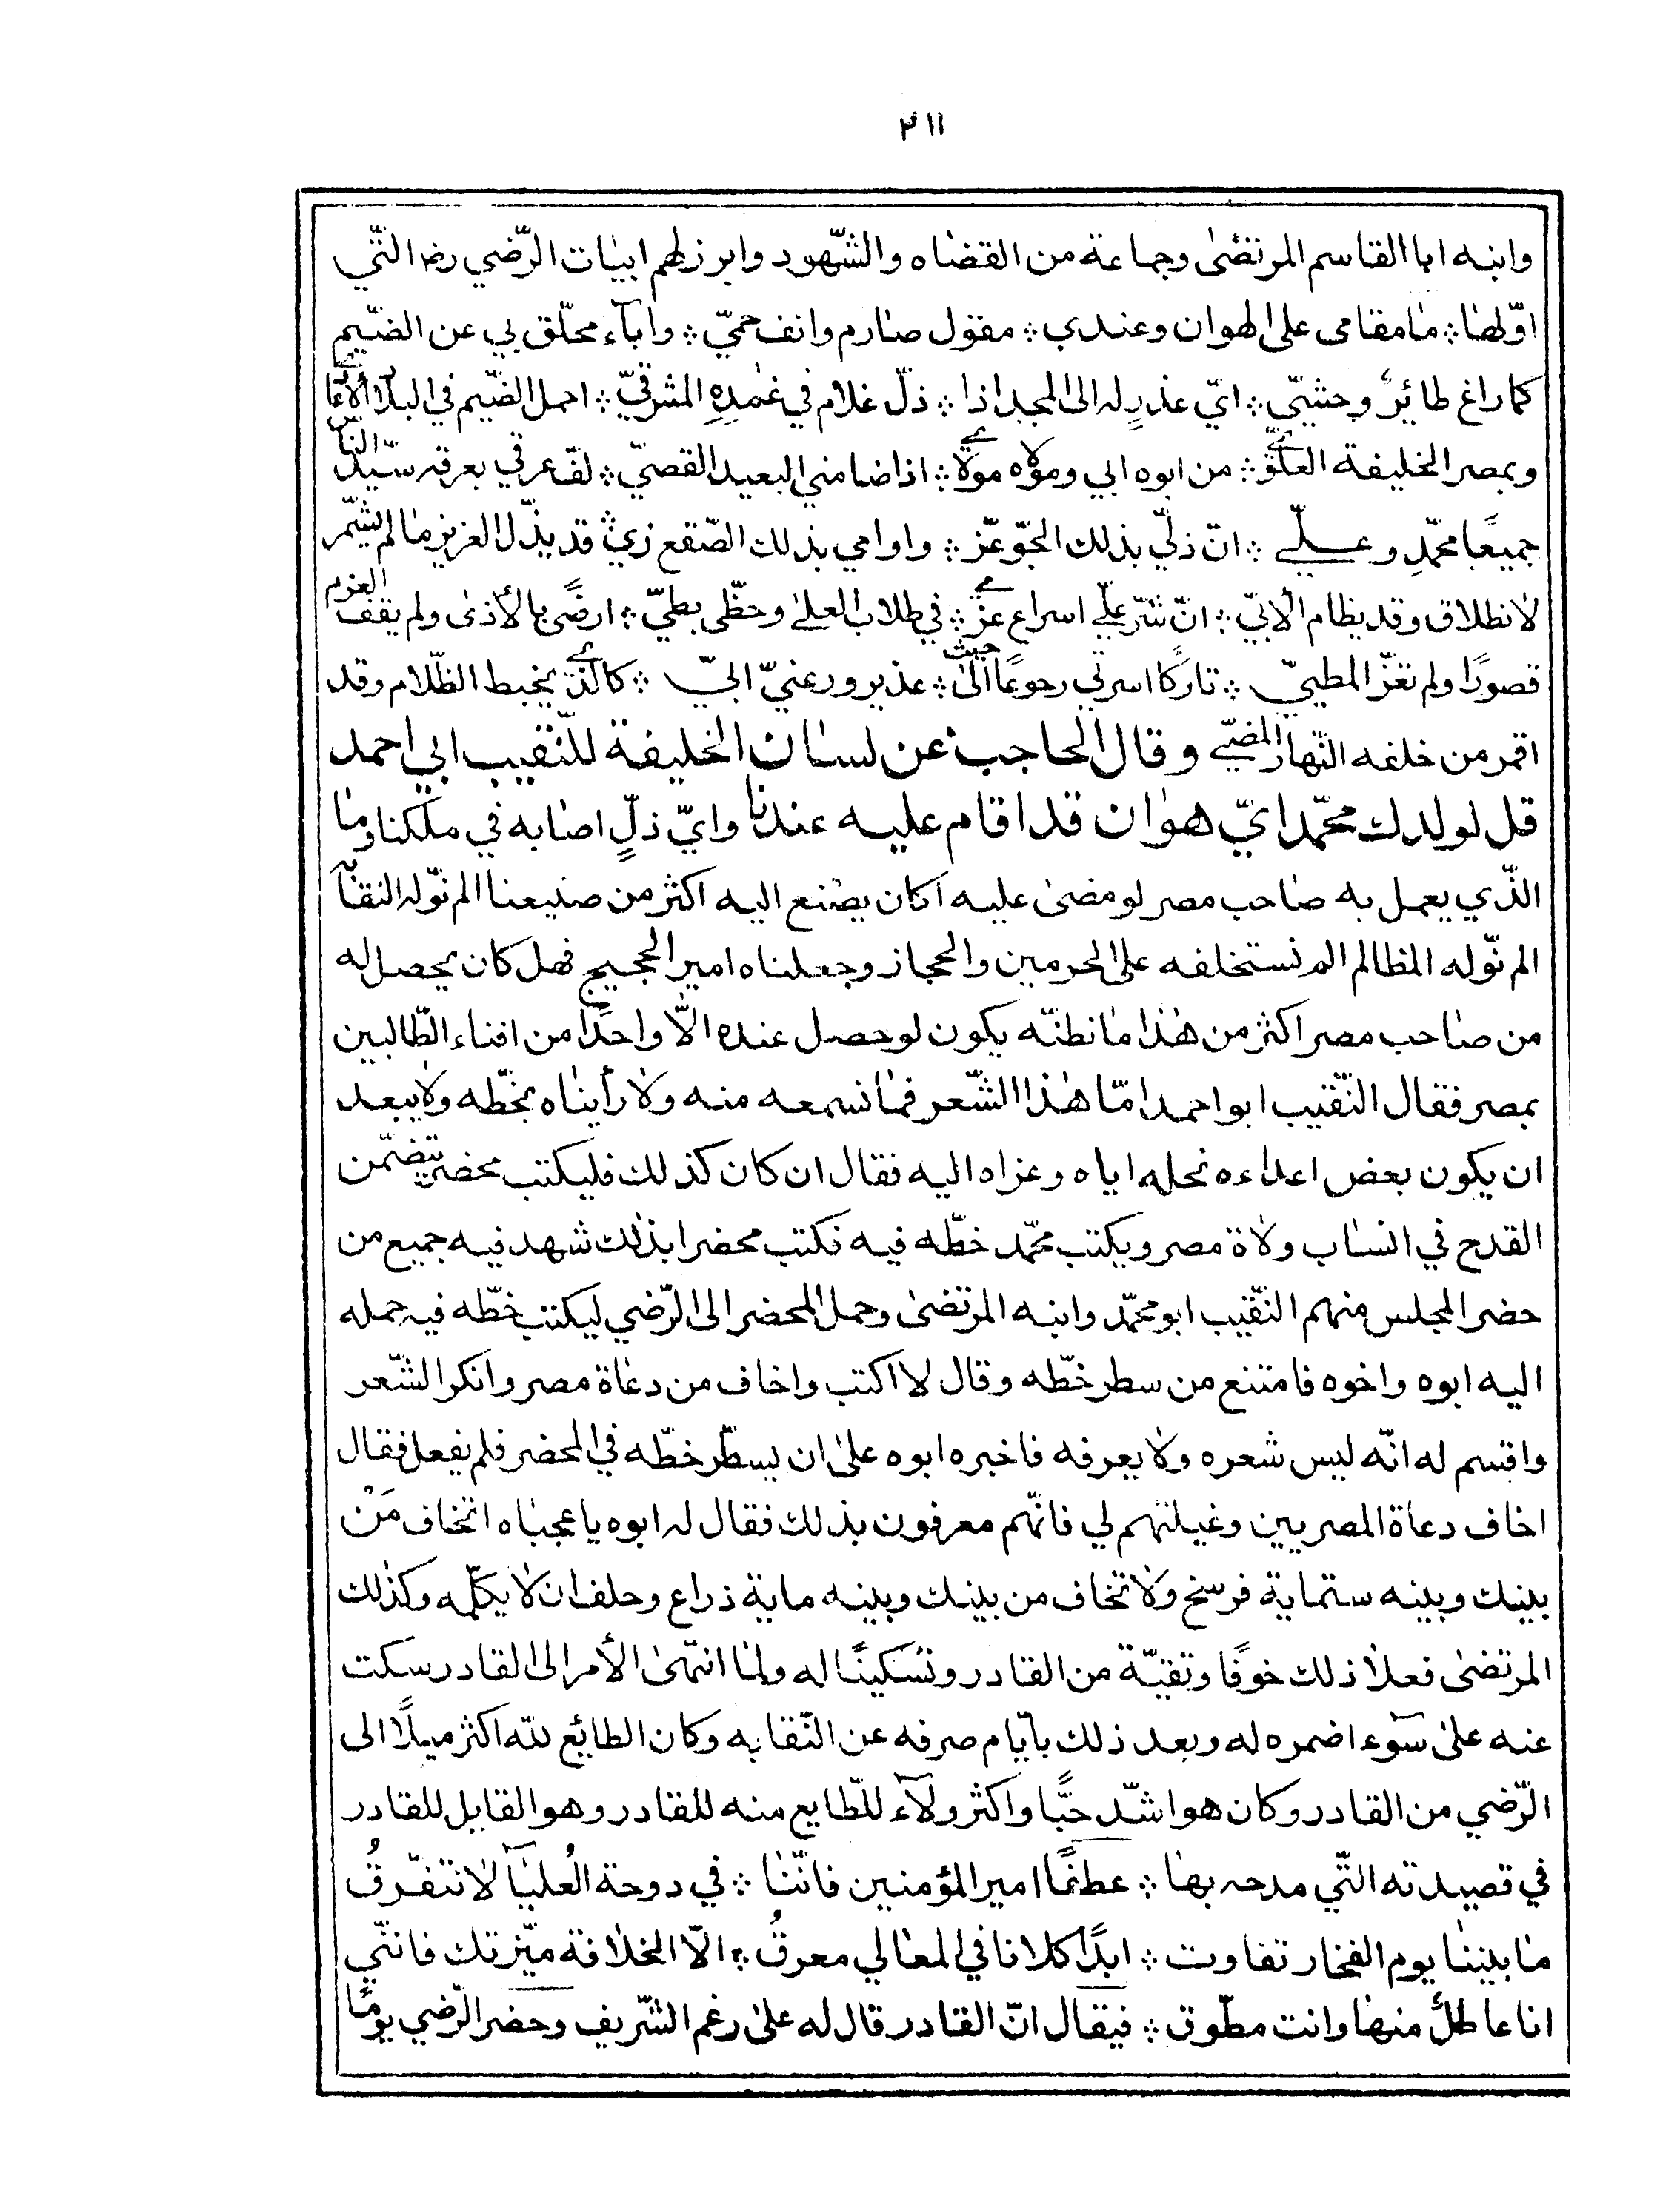 ٢١١
وابنه ابا القاسم المرتضى وجماعة من القضاه والشّهود وابرز لهم ابيات الرّضي رض التّي
اوّلها ؞ ما مقامى على الهوان وعندي ؞ مقول صارم وانف حميّ ؞ واباء محلّق بي عن الضّيم
كما راغ طائرٌ وحشيّ ؞ ايّ عذرٍ له الى المجد اذا ؞ ذلّ غلام في غمده المشرفيّ ؞ احمل الضّيم في البلاد الأعادي
وبمصر الخليفة العلويّ ؞ من ابوه ابي ومولاه مولاي ؞ اذا ضامني البعيد القصيّ ؞ لفّ عرقي بعرقه سيّدا النّاس
جميعًا محمّدٍ وعليّ ؞ انّ ذلّي بذلك الجوّ عزّ ؞ واوامي بذلك الصّقع ريّ ؞ قد يذّل العزيز ما لم يشمّر
لانطلاق وقد يظام الأبيّ ؞ انّ شرّ عليّ اسراع عزمي ؞ في طلاب العلى وحظّى بطيّ ؞ ارضى بالأذى ولم يقف العزم
قصورًا ولم تعزّ المطيّ ؞ تاركًا اسرتي رجوعًا الى حيث ؞ غديرو رعنيّ ابيّ ؞ كالذي يخبط الظّلام وقد
اقمر من خلفه النّهار المضيّ وقال الحاجب عن لسان الخليفة للنّقيب ابي احمد
قل لولدك محمّد ايّ هوان قد اقام عليه عندنا وايّ ذلّ اصابه في ملكنا وما
الذّي يعمل به صاحب مصر لو مضى عليه اكان يصنع اليه اكثر من صنيعنا الم نوّله النقابة
الم نوّله المظالم الم نستخلفه على الحرمين والحجاز وجعلناه امير الحجيج فهل كان يحصل له
من صاحب مصر اكثر من هذا ما نظنّه يكون لو حصل عنده الّا واحدًا من افناء الطّالبين
بمصر فقال النّقيب ابو احمد امّا هذا الشّعر فما نسمعه منه ولا رأيناه بخطّه ولا يبعد
ان يكون بعض اعداءه نحله اياه وعزاه اليه فقال ان كان كذلك فليكتب محضر يتضمّن
القدح في انساب ولاة مصر ويكتب محمّد خطّه فيه فكتب محضرا بذلك شهد فيه جميع من
حضر المجلس منهم النّقيب ابو محمّد وابنه المرتضى وحمل المحضر الى الرّضي ليكتب خطّه فيه حمله
اليه ابوه واخوه فامتنع من سطر خطّه وقال لا اكتب واخاف من دعاة مصر وانكر الشّعر
واقسم له انّه ليس شعره ولا يعرفه فاخبره ابوه على ان يسطّر خطّه في المحضر فلم يفعل فقال
اخاف دعاة المصريين وغيلتهم لي فانّهم معرفون بذلك فقال له ابوه يا عجباه اتخاف مَنْ
بينك وبينه ستماية فرسخ ولا تخاف من بينك وبينه ماية ذراع وحلف ان لا يكلّمه وكذلك
المرتضى فعلا ذلك خوفًا وتقيّة من القادر وتسكينًا له ولما انتهى الأمر الى القادر سكت
عنه على سوء اضمره له وبعد ذلك بأيّام صرفه عن النّقابه وكان الطائع لله اكثر ميلًا الى
الرّضي من القادر وكان هو اشدّ حبًّا واكثر ولآء للطّايع منه للقادر وهو القايل للقادر
في قصيدته التّي مدحه بها ؞ عطفًا امير المؤمنين فانّنا ؞ في دوحة العُليآ لا نتفرّقُ
ما بيننا يوم الفخار تفاوت ؞ ابدًا كلانا في المعالي معرقُ ؞ الّا الخلافة ميّزتك فانّني
انا عاطلٌ منها وانت مطّوق ؞ فيقال انّ القادر قال له على رغم الشّريف وحضر الرّضي يومًا